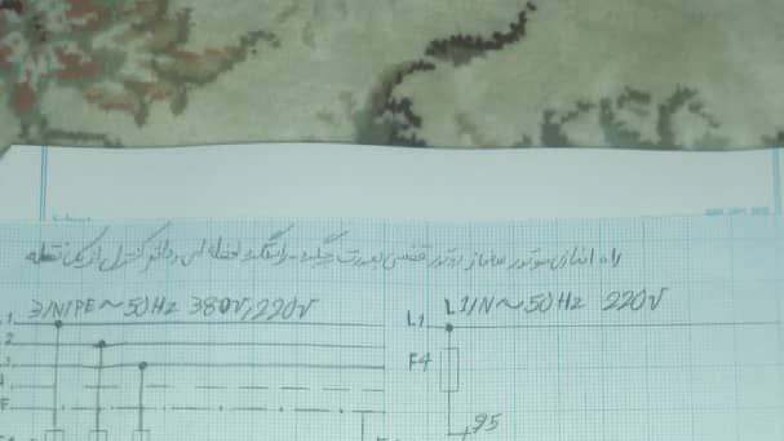 راه اندازی موتور سه فاز روتور قفسی بصورت چپگرد - راستگرد لحظه ای و دائم کنترل از یک نقطه
3/N/PE ~ 50Hz 380V, 220V
L1/N ~ 50Hz 220V
1
L1
2
F4
95